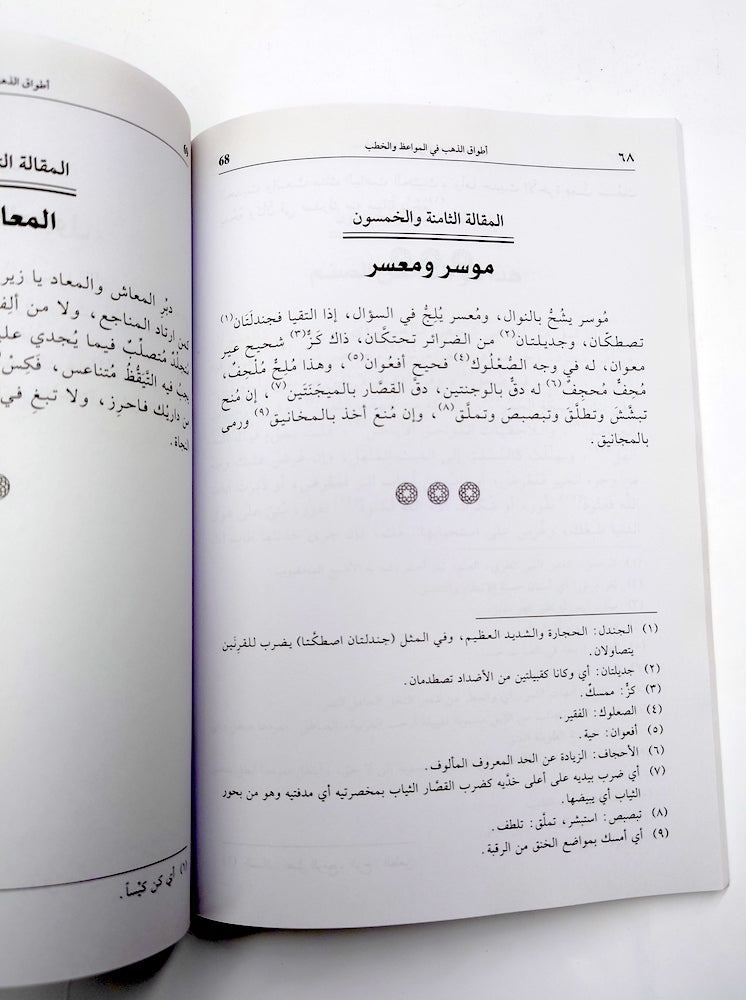 68 أطواق الذهب في المواعظ والخطب ٦٨
المقالة الثامنة والخمسون
موسر ومعسر
مُوسر يشُحُّ بالنوال، ومُعسر يُلِحُّ في السؤال، إذا التقيا فجندلَتَان(١)
تصطكّان، وجديلتان(٢) من الضرائر تحتكَّان، ذاك كَزٌّ(٣) شحيح غير
معوان، له في وجه الصُّعْلُوك(٤) فحيح أفعُوان(٥)، وهذا مُلِحٌّ مُلْحِفٌ،
مُجِفٌّ مُحجِفٌ(٦) له دقٌّ بالوجنتين، دقَّ القصَّار بالميجَنَتَين(٧)، إن مُنح
تبشَّش وتطلَّق وتبصبص وتملَّق(٨)، وإن مُنعَ أخذ بالمخانيق(٩) ورمى
بالمجانيق.
(١) الجندل: الحجارة والشديد العظيم، وفي المثل (جندلتان اصطكَّتا) يضرب للقرنَين
يتصاولان.
(٢) جديلتان: أي وكانا كقبيلتين من الأضداد تصطدمان.
(٣) كزٌّ: ممسكٌ.
(٤) الصعلوك: الفقير.
(٥) أفعوان: حية.
(٦) الأحجاف: الزيادة عن الحد المعروف المألوف.
(٧) أي ضرب بيديه على أعلى خدَّيه كضرب القصَّار الثياب بمخصرتيه أي مدقتيه وهو من يحور
الثياب أي يبيضها.
(٨) تبصبص: استبشر، تملّق: تلطف.
(٩) أي أمسك بمواضع الخنق من الرقبة.
أطواق الذهب
المقالة
المعا
دبِّر المعاش والمعاد يا زير
ارتاد المناجع، ولا من
مُتصلِّبٌ فيما يُجدي
فيه التَّيَقُّظُ مُتناعس، فَكِسْ
داريْك فاحرِز، ولا تبغِ في
النجاة.
(١) أي كن كيّساً.